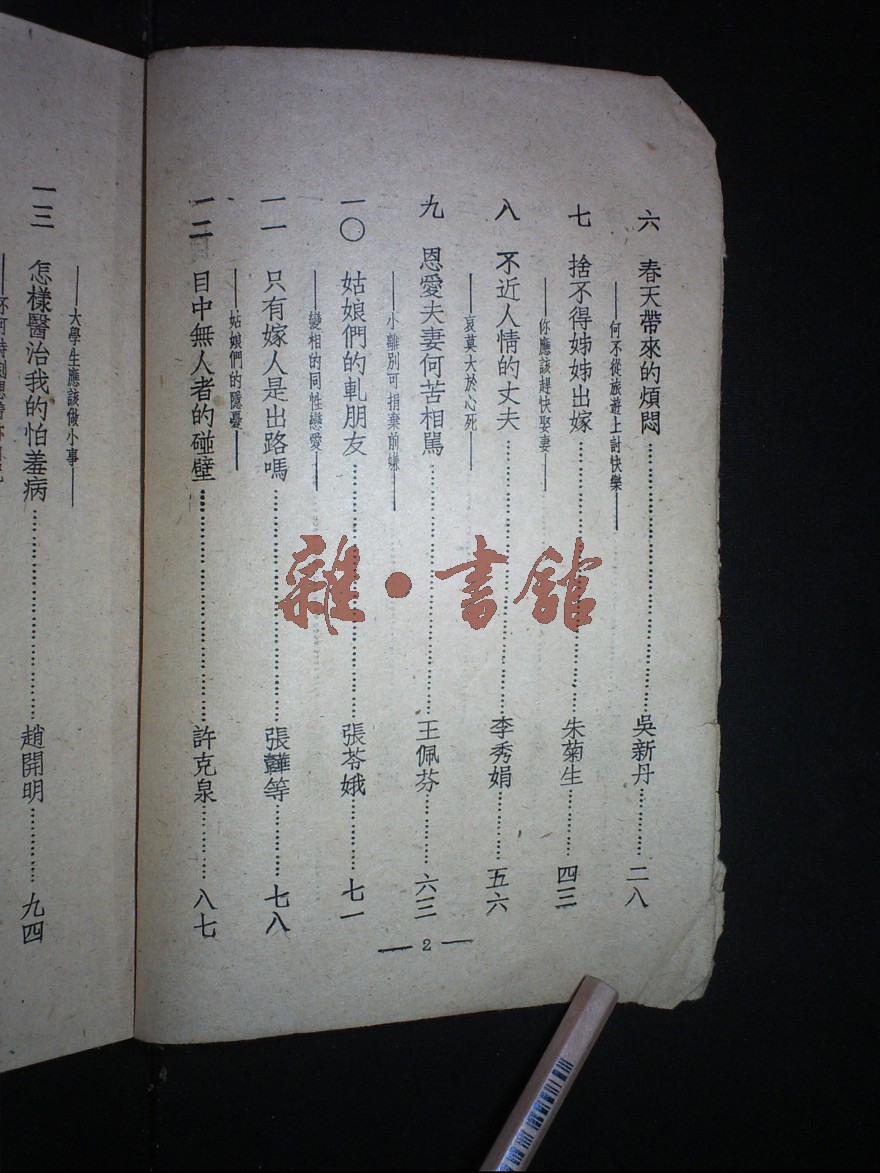 六 春天帶來的煩悶……吳新丹……二八
——何不從旅遊上討快樂——
七 捨不得姊姊出嫁……朱菊生……四三
——你應該趕快娶妻——
八 不近人情的丈夫……李秀娟……五六
——哀莫大於心死——
九 恩愛夫妻何苦相罵……王佩芬……六三
——小離別可捐棄前嫌——
一〇 姑娘們的軋朋友……張苓娥……七一
——變相的同性戀愛——
一一 只有嫁人是出路嗎……張韡等……七八
——姑娘們的隱憂——
一二 目中無人者的碰壁……許克泉……八七
——大學生應該做小事——
一三 怎樣醫治我的怕羞病……趙開明……九四
— 2 —
雜·書館